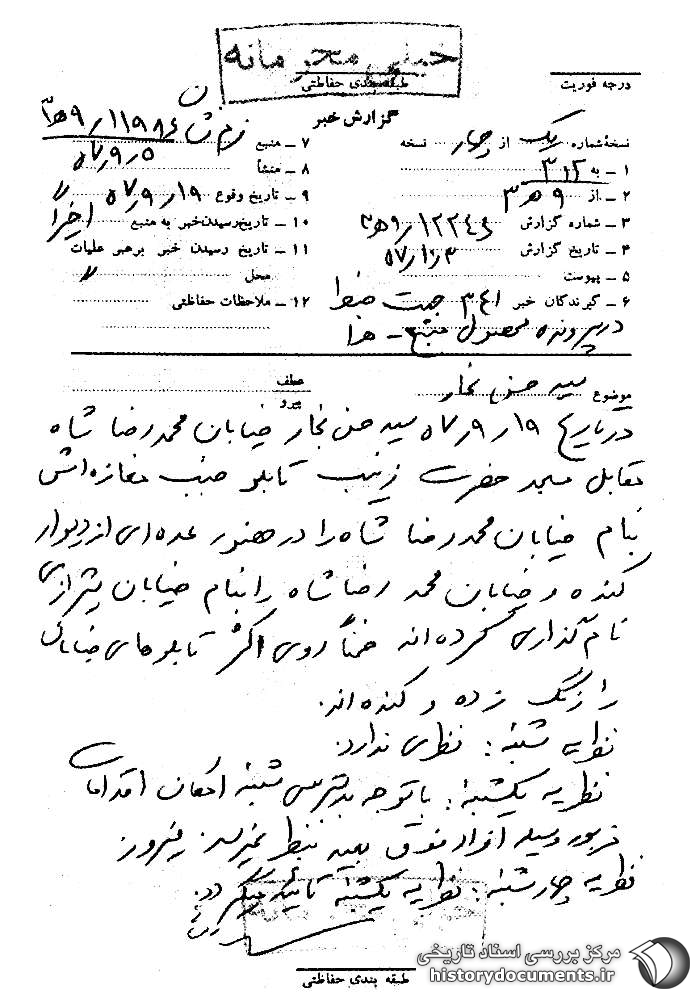 خیلی محرمانه
طبقه بندی حفاظتی
درجه فوریت
گزارش خبر
نسخهٔ شماره یک از چهار نسخه
۱ ـ به ۳۱۲
۲ ـ از ۹ ﻫ ۳
۳ ـ شماره گزارش ۱۲۲۴۶ / ۹ ﻫ ۳
۴ ـ تاریخ گزارش
۵ ـ پیوست
۶ ـ گیرندگان خبر ۳۴۱ جهت ضبط
در پرونده محصول منبع ـ
۷ ـ منبع
۸ ـ منشأ
۹ ـ تاریخ وقوع ۱۹ر۹ر۵۷
۱۰ ـ تاریخ رسیدن خبر به منبع اخیراً
۱۱ ـ تاریخ رسیدن خبر برهبر عملیات
محل
۱۲ ـ ملاحظات حفاظتی
موضوع سید حسن نجار
عطف
پیرو
در تاریخ ۱۹ر۹ر۵۷ سید حسن نجار خیابان محمدرضا شاه
مقابل مسجد حضرت زینب تابلو جنب مغازه‌اش
بنام خیابان محمدرضا شاه را در حضور عده‌ای از دیوار
کنده و خیابان محمد رضا شاه را بنام خیابان
نام گذاری کرده‌اند ضمناً روی اکثر تابلوهای خیابان
را رنگ زده و کنده‌اند.
نظریه شنبه: نظری ندارد.
نظریه یکشنبه: با توجه بدسترسی شنبه امکان اقدامات
مزبور وسیله افراد فوق بعید بنظر نمیرسد. فیروز
نظریه چهارشنبه: نظریه یکشنبه تأئید میگردد.
طبقه بندی حفاظتی
مرکز بررسی اسناد تاریخی
historydocuments.ir